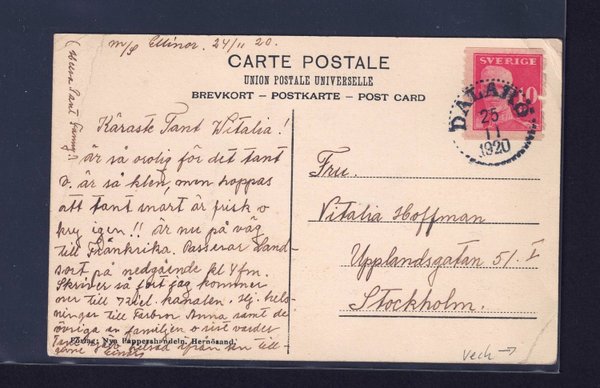 m/s Ellinor. 24/11 20.
CARTE POSTALE
UNION POSTALE UNIVERSELLE
BREVKORT – POSTKARTE – POST CARD
SVERIGE
10
DALARÖ
25
11
1920
Käraste Tant Vitalia!
är så orolig för det tant
är så klen, men hoppas
att tant snart är frisk o
kry igen!! är nu på väg
till Frankrike. Passerar Land-
sort på nedgående kl 4 fm.
Skriver så fort jag kommer
över till kanalen. Hj. hels-
ningar till Farbror Anna samt de
övriga av familjen o sist
Förlag: Nya Pappershandeln, Hernösand.
Fru.
Vitalia Hoffman
Upplandsgatan 51. I
Stockholm.
Veck →